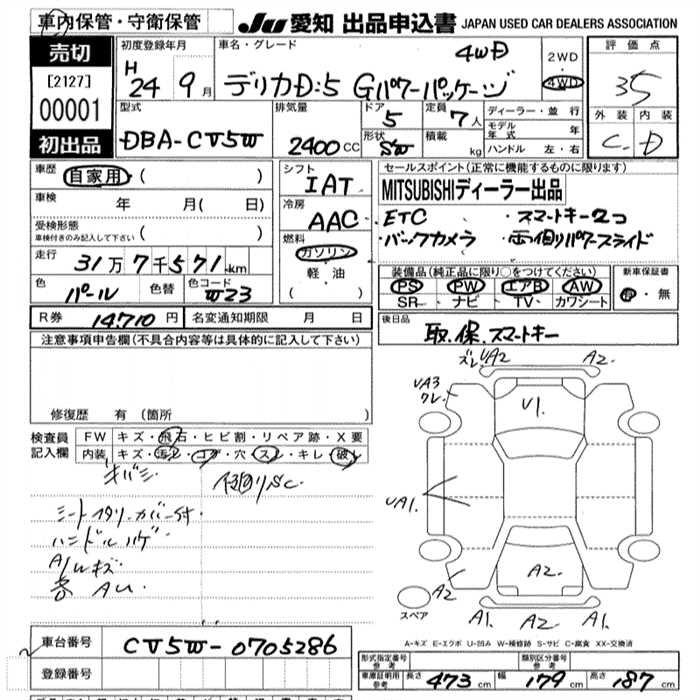 車内保管・守衛保管
JU 愛知 出品申込書 JAPAN USED CAR DEALERS ASSOCIATION
売切
[2127]
00001
初出品
初度登録年月
H 24 9月
車名・グレード
4WD
デリカD:5 Gパワーパッケージ
2WD
・
4WD
評価点
3.5
外装 内装
C D
型式
DBA-CV5W
排気量
2400CC
ドア
5
形状
SW
定員
7人
積載 kg
ディーラー・並行
モデル年式 年
ハンドル 左・右
車歴 自家用 ( )
車検 年 月( 日)
受検形態
車検付きのみ記入して下さい ( )
走行 31万7千571km
色 パール 色替 色コード W23
シフト
IAT
冷房
AAC
燃料
ガソリン
軽油
( )
セールスポイント(正常に機能するものに限ります)
MITSUBISHIディーラー出品
・ETC ・スマートキー2コ
・バックカメラ ・両側パワースライド
装備品(純正品に限り○をつけてください) 新車保証書
PS・PW・エアB・AW
SR・ナビ・TV・カワシート
有・無
R券 14,710円 名変通知期限 月 日
後日品
取.保.スマートキー
注意事項申告欄(不具合内容等は具体的に記入して下さい)
修復歴 有 (箇所 )
検査員記入欄
FW キズ・飛石・ヒビ割・リペア跡・X要
内装 キズ・汚レ・コゲ・穴・スレ・キレ・破レ
キバミ
シート
ハンドルハゲ
A/Wキズ
ズレ UA2 A2
UA3
クレ
U1.
UA1.
A2
A2.
A1. A2 A1.
スペア
A-キズ E-エクボ U-凹み W-補修跡 S-サビ C-腐食 XX-交換済
車台番号 CV5W-0705286
登録番号
形式指定番号 参考 類別区分番号 参考
車庫証明用 参考 長さ 473cm 幅 179cm 高さ 187cm